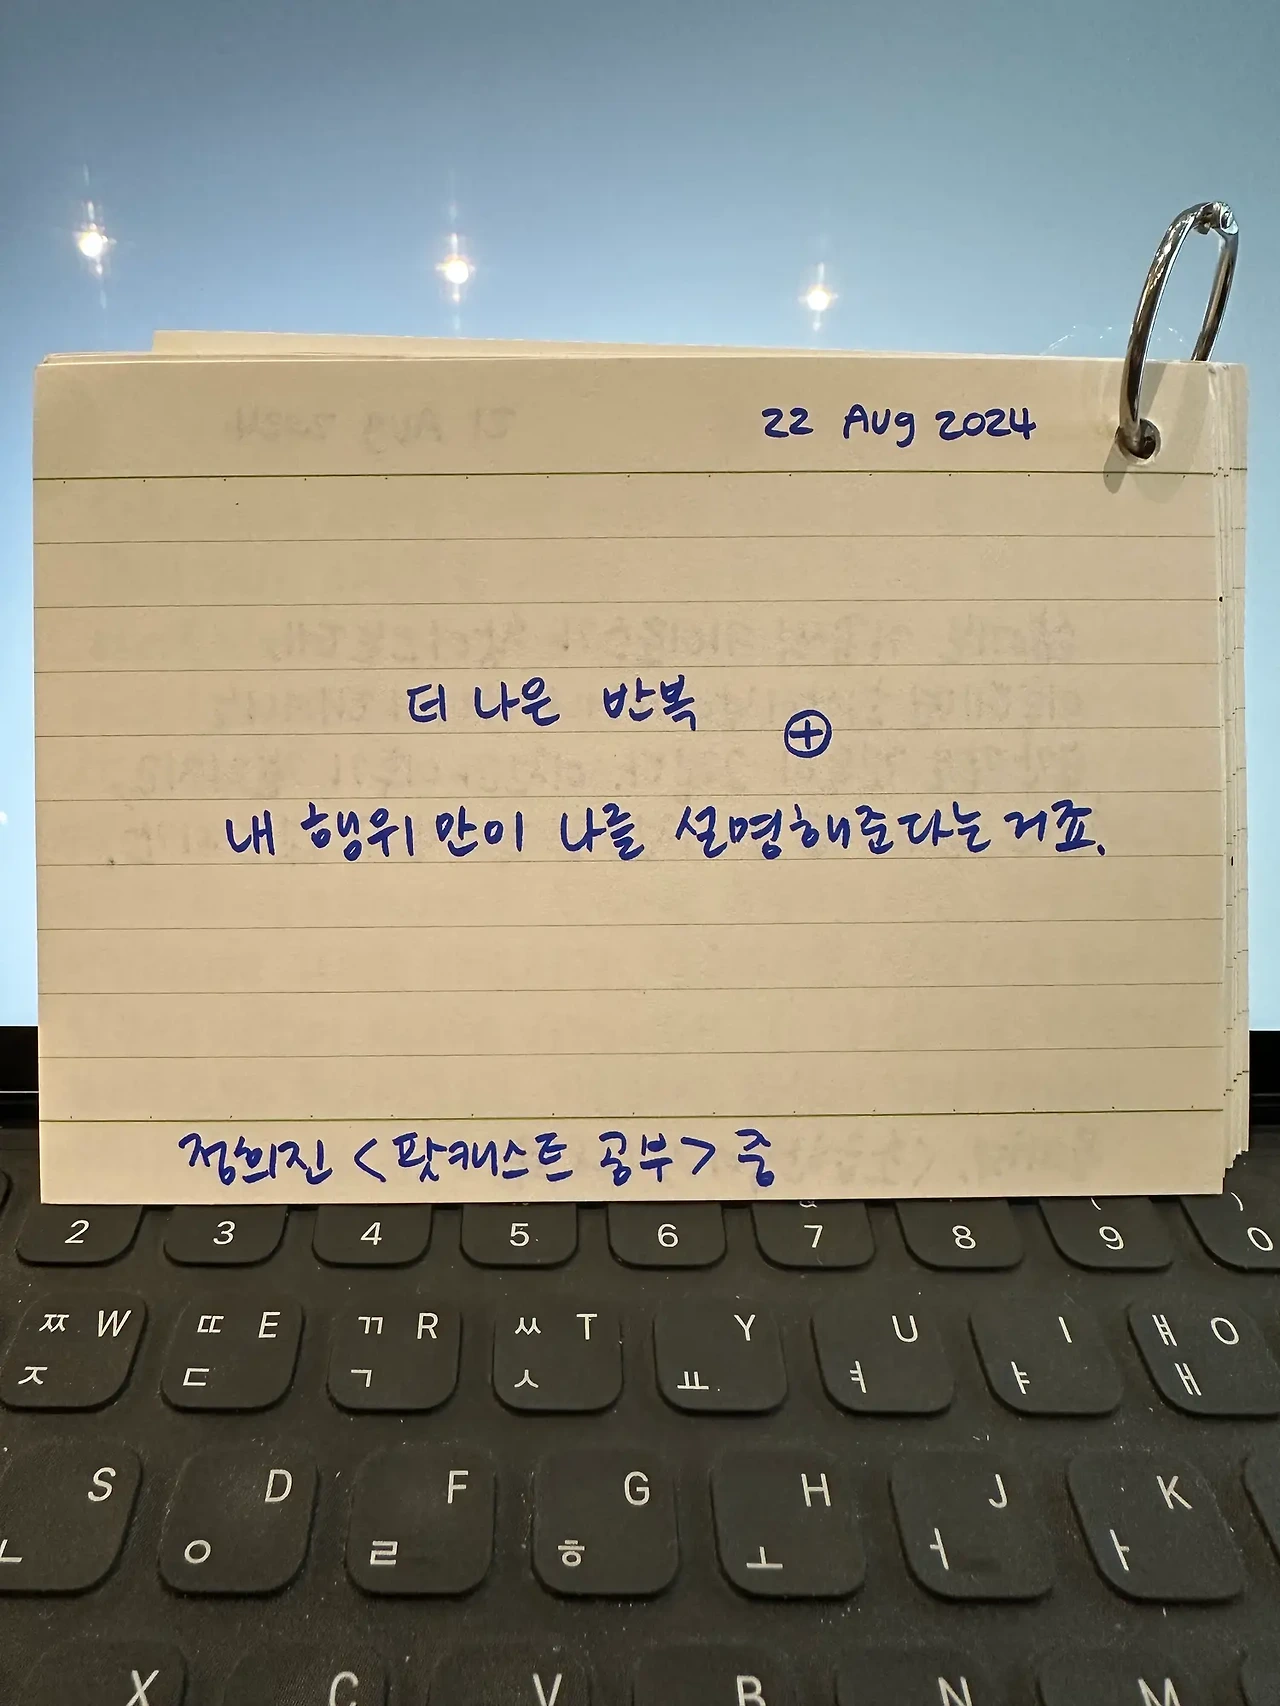 22 Aug 2024
더 나은 반복
⊕
내 행위만이 나를 설명해준다는거죠.
정희진 <팟캐스트 공부> 중
2 3 4 5 6 7 8 ( 9 ) 0
ㅉ W ㄸ E ㄲ R ㅆ T Y U I ㅒ O
ㅈ ㄷ ㄱ ㅅ ㅛ ㅕ ㅑ ㅐ
S D F G H J K
ㄴ ㅇ ㄹ ㅎ ㅗ ㅓ ㅏ
X C V B N M